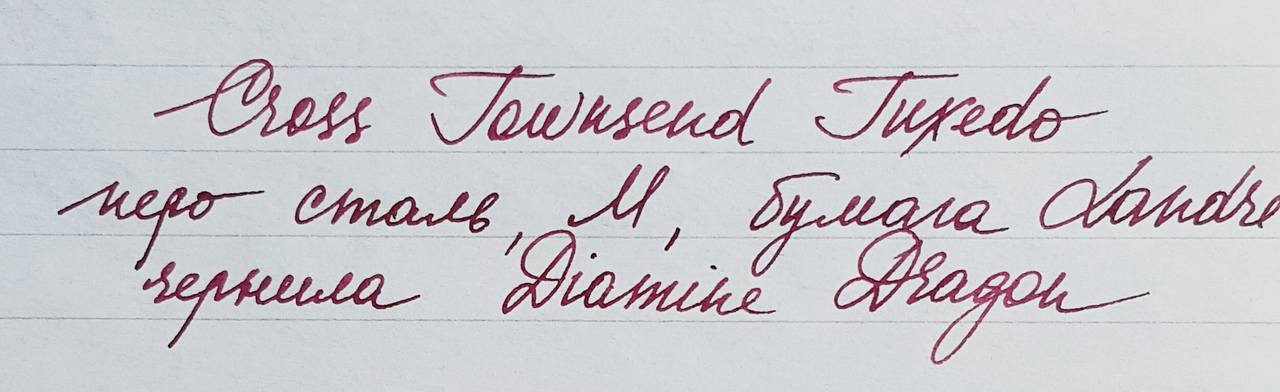 Cross Townsend Tuxedo
перо сталь, M, бумага Landre
чернила Diamine Dragon